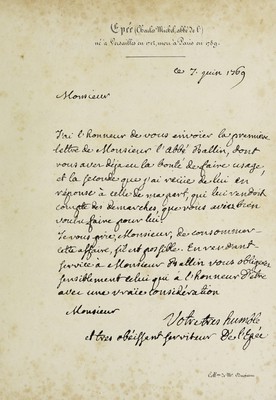 Epée (Charles Michel, abbé de l')
né à Versailles en 1712, mort à Paris en 1789.
ce 7. juin 1769
Monsieur
J'ai l'honneur de vous envoier la premiere
lettre de Monsieur l'abbé Ballin, dont
vous avez deja eu la bonté de faire usage,
et la seconde que j'ai reçue de lui en
réponse à celle de ma part, qui lui rendoit
compte des demarches que vous aviez bien
voulu faire pour lui.
Je vous prie, Monsieur, de consommer
cette affaire, s'il est possible. En rendant
service à Monsieur Ballin vous obligerez
sensiblement celui qui à l'honneur d'être
avec une vraie considération
Monsieur
Votre tres humble
et tres obéissant serviteur De l'Epée